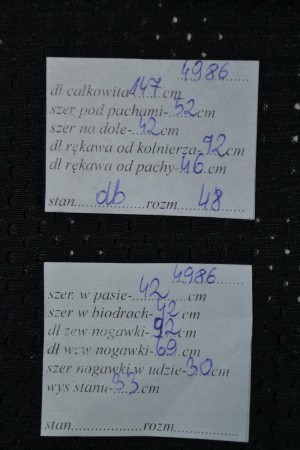 4986
dł całkowita 147 cm
szer pod pachami- 52 cm
szer na dole- 42 cm
dł rękawa od kołnierza- 92 cm
dł rękawa od pachy- 46 cm
stan db rozm 48
4986
szer. w pasie- 42 cm
szer w biodrach- 42 cm
dł zew nogawki- 92 cm
dł wew nogawki- 69 cm
szer nogawki w udzie- 30 cm
wys stanu- 33 cm
stan rozm